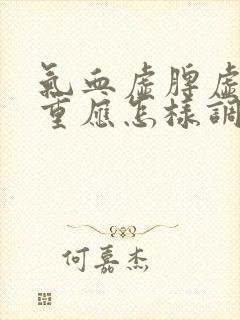 氣血虛脾虛
重應怎樣調
何嘉杰